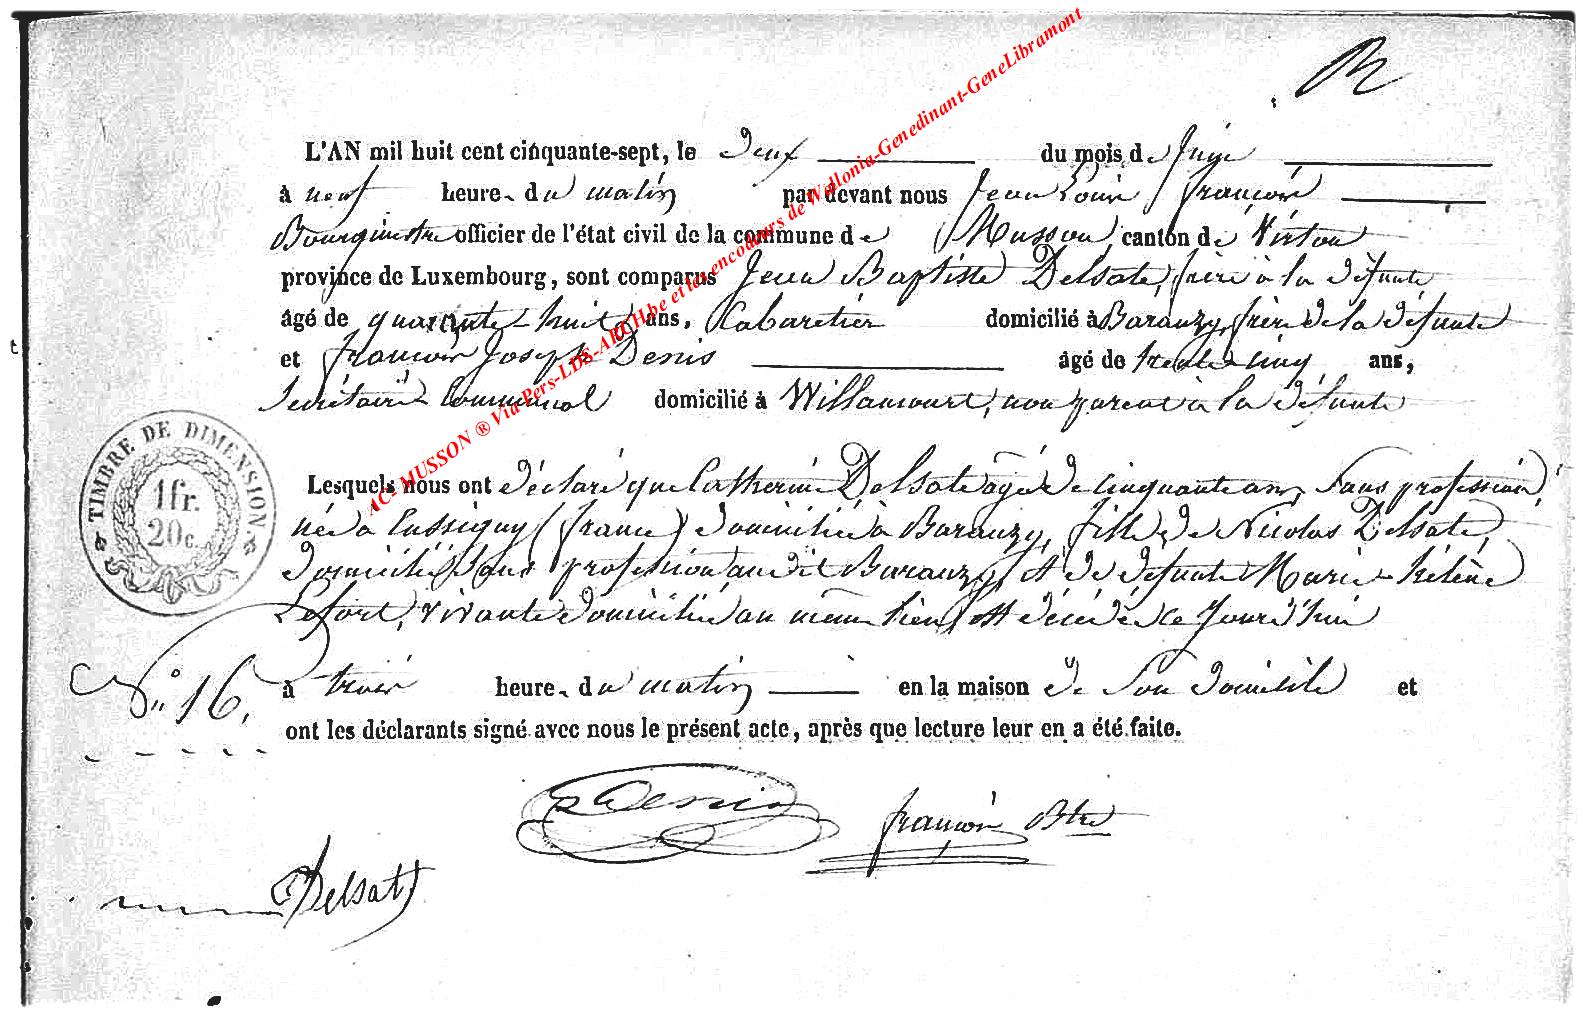 L'AN mil huit cent cinquante-sept, le deux du mois de Juin
à neuf heure du matin par devant nous Jean Louis François
Bourgmestre officier de l'état civil de la commune de Musson canton de Virton
province de Luxembourg, sont comparus Jean Baptiste Delsate, frère à la défunte
âgé de quarante-huit ans, Cabaretier domicilié à Baranzy, frère de la défunte
et françois Joseph Denis âgé de trente cinq ans,
Secrétaire Communal domicilié à Willancourt, non parent à la défunte
TIMBRE DE DIMENSION
1fr.
20c.
Lesquels nous ont déclaré que Catherine Delsate âgée de cinquante ans, Sans profession,
née à Cussigny (france) domiciliée à Baranzy, fille de Nicolas Delsate,
domicilié sans profession au dit Baranzy, et de défunte Marie-Hélène
Lefort, vivante domiciliée au même lieu, est décédée ce jourd'hui
N° 16.
à trois heure du matin en la maison de Son domicile et
ont les déclarants signé avec nous le présent acte, après que lecture leur en a été faite.
Denis
françois Btre
Delsate
AC- MUSSON ® Via Pers-LDS-ARCH.be et les encodeurs de Wallonia-Genedinant-GeneLibramont